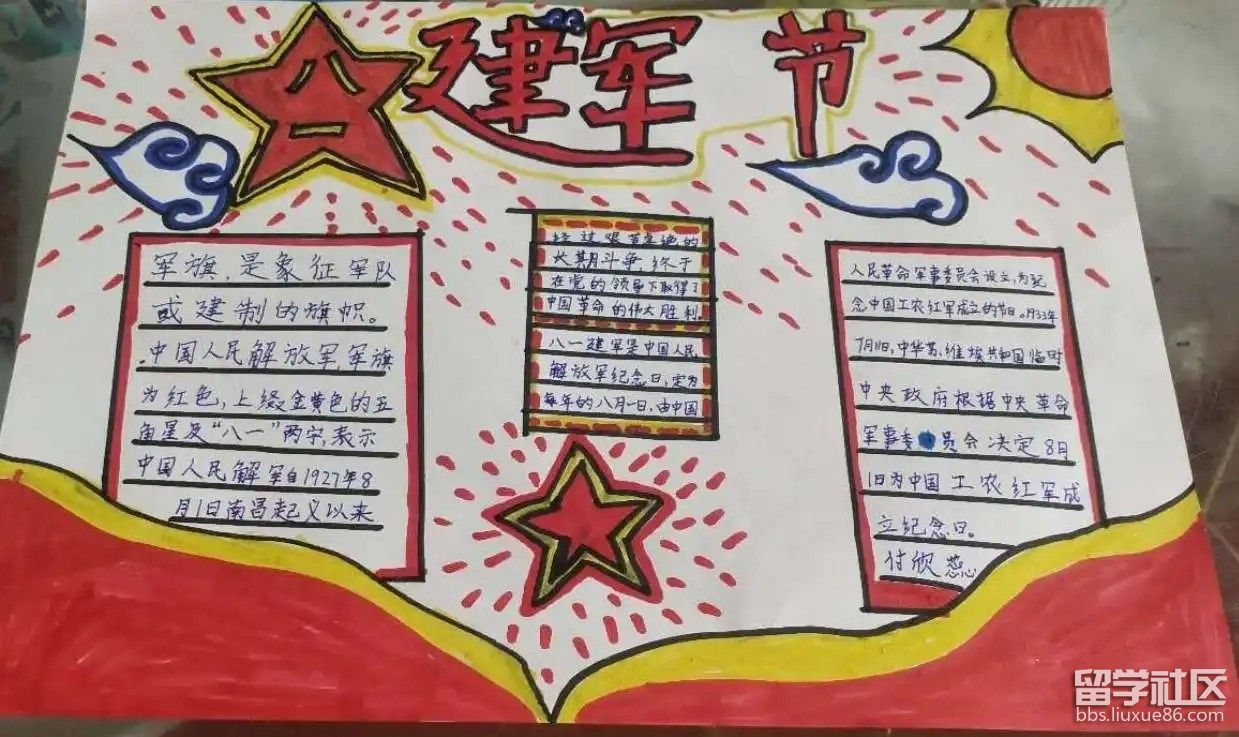 八一
建军节
军旗,是象征军队
或建制的旗帜。
中国人民解放军军旗
为红色,上缀金黄色的五
角星及“八一”两字,表示
中国人民解军自1927年8
月1日南昌起义以来
经过艰苦卓绝的
长期斗争,终于
在党的领导下取得了
中国革命的伟大胜利.
八一建军是中国人民
解放军纪念日,定为
每年的八月一日,由中国
人民革命军事委员会设立,为纪
念中国工农红军成立的节日。1933年
7月1日,中华苏维埃共和国临时
中央政府根据中央革命
军事委员会决定8月
1日为中国工农红军成
立纪念日。
付欣蕊
留学社区
bbs.liuxue86.com